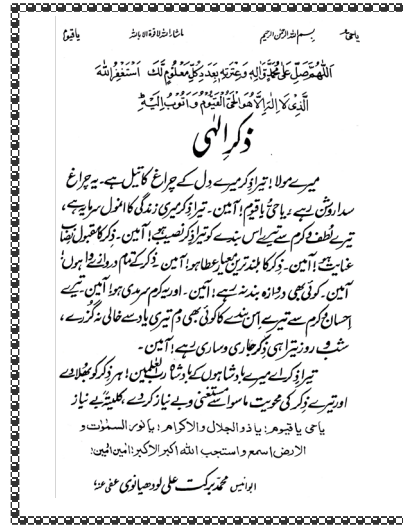 یاحی بسم اللہ الرحمٰن الرحیم ماشاء اللہ لا قوۃ الا باللہ یا قیوم
اَللّٰهُمَّ صَلِّ عَلٰى مُحَمَّدٍ وَّاٰلِهٖ وَعِتْرَتِهٖ بِعَدَدِ كُلِّ مَعْلُوْمٍ لَّكَ اَسْتَغْفِرُ اللهَ
الَّذِىْ لَا اِلٰهَ اِلَّا هُوَ الْحَىُّ الْقَيُّوْمُ وَاَتُوْبُ اِلَيْهِ
ذکرِ الٰہی
میرے مولا! تیرا ذکر میرے دل کے چراغ کا تیل ہے۔ یہ چراغ
سدا روشن رہے، یا حیُّ یا قیوم! آمین۔ تیرا ذکر میری زندگی کا انمول سرمایہ ہے،
تیرے لطف و کرم سے تیرے اس بندے کو تیرا ذکر نصیب ہے! آمین۔ ذکر کا مقبول نصاب
عنایت ہو! آمین۔ ذکر کا بلند ترین معیار عطا ہو! آمین۔ ذکر کے تمام دروازے وا ہوں!
آمین۔ کوئی بھی دروازہ بند نہ رہے! آمین۔ اور یہ کرم سرمدی ہو! آمین۔ تیرے
احسان و کرم سے تیرے اس بندے کا کوئی بھی دم تیری یاد سے خالی نہ گزرے،
شب و روز تیرا ہی ذکر جاری و ساری رہے! آمین۔
تیرا ذکر اے میرے بادشاہوں کے بادشاہ رب العٰلمین! ہر ذکر کو بھلا دے
اور تیرے ذکر کی محویت ماسوا سے مستغنی و بے نیاز کر دے، کلیۃً بے نیاز
یا حی یا قیوم؛ یا ذوالجلال والاکرام؛ یا نور السمٰوٰت و
الارض اسمع و استجب اللہ اکبر الاکبر؛ امین امین؛
ابو انیس محمد برکت علی لودھیانوی عفی عنہ